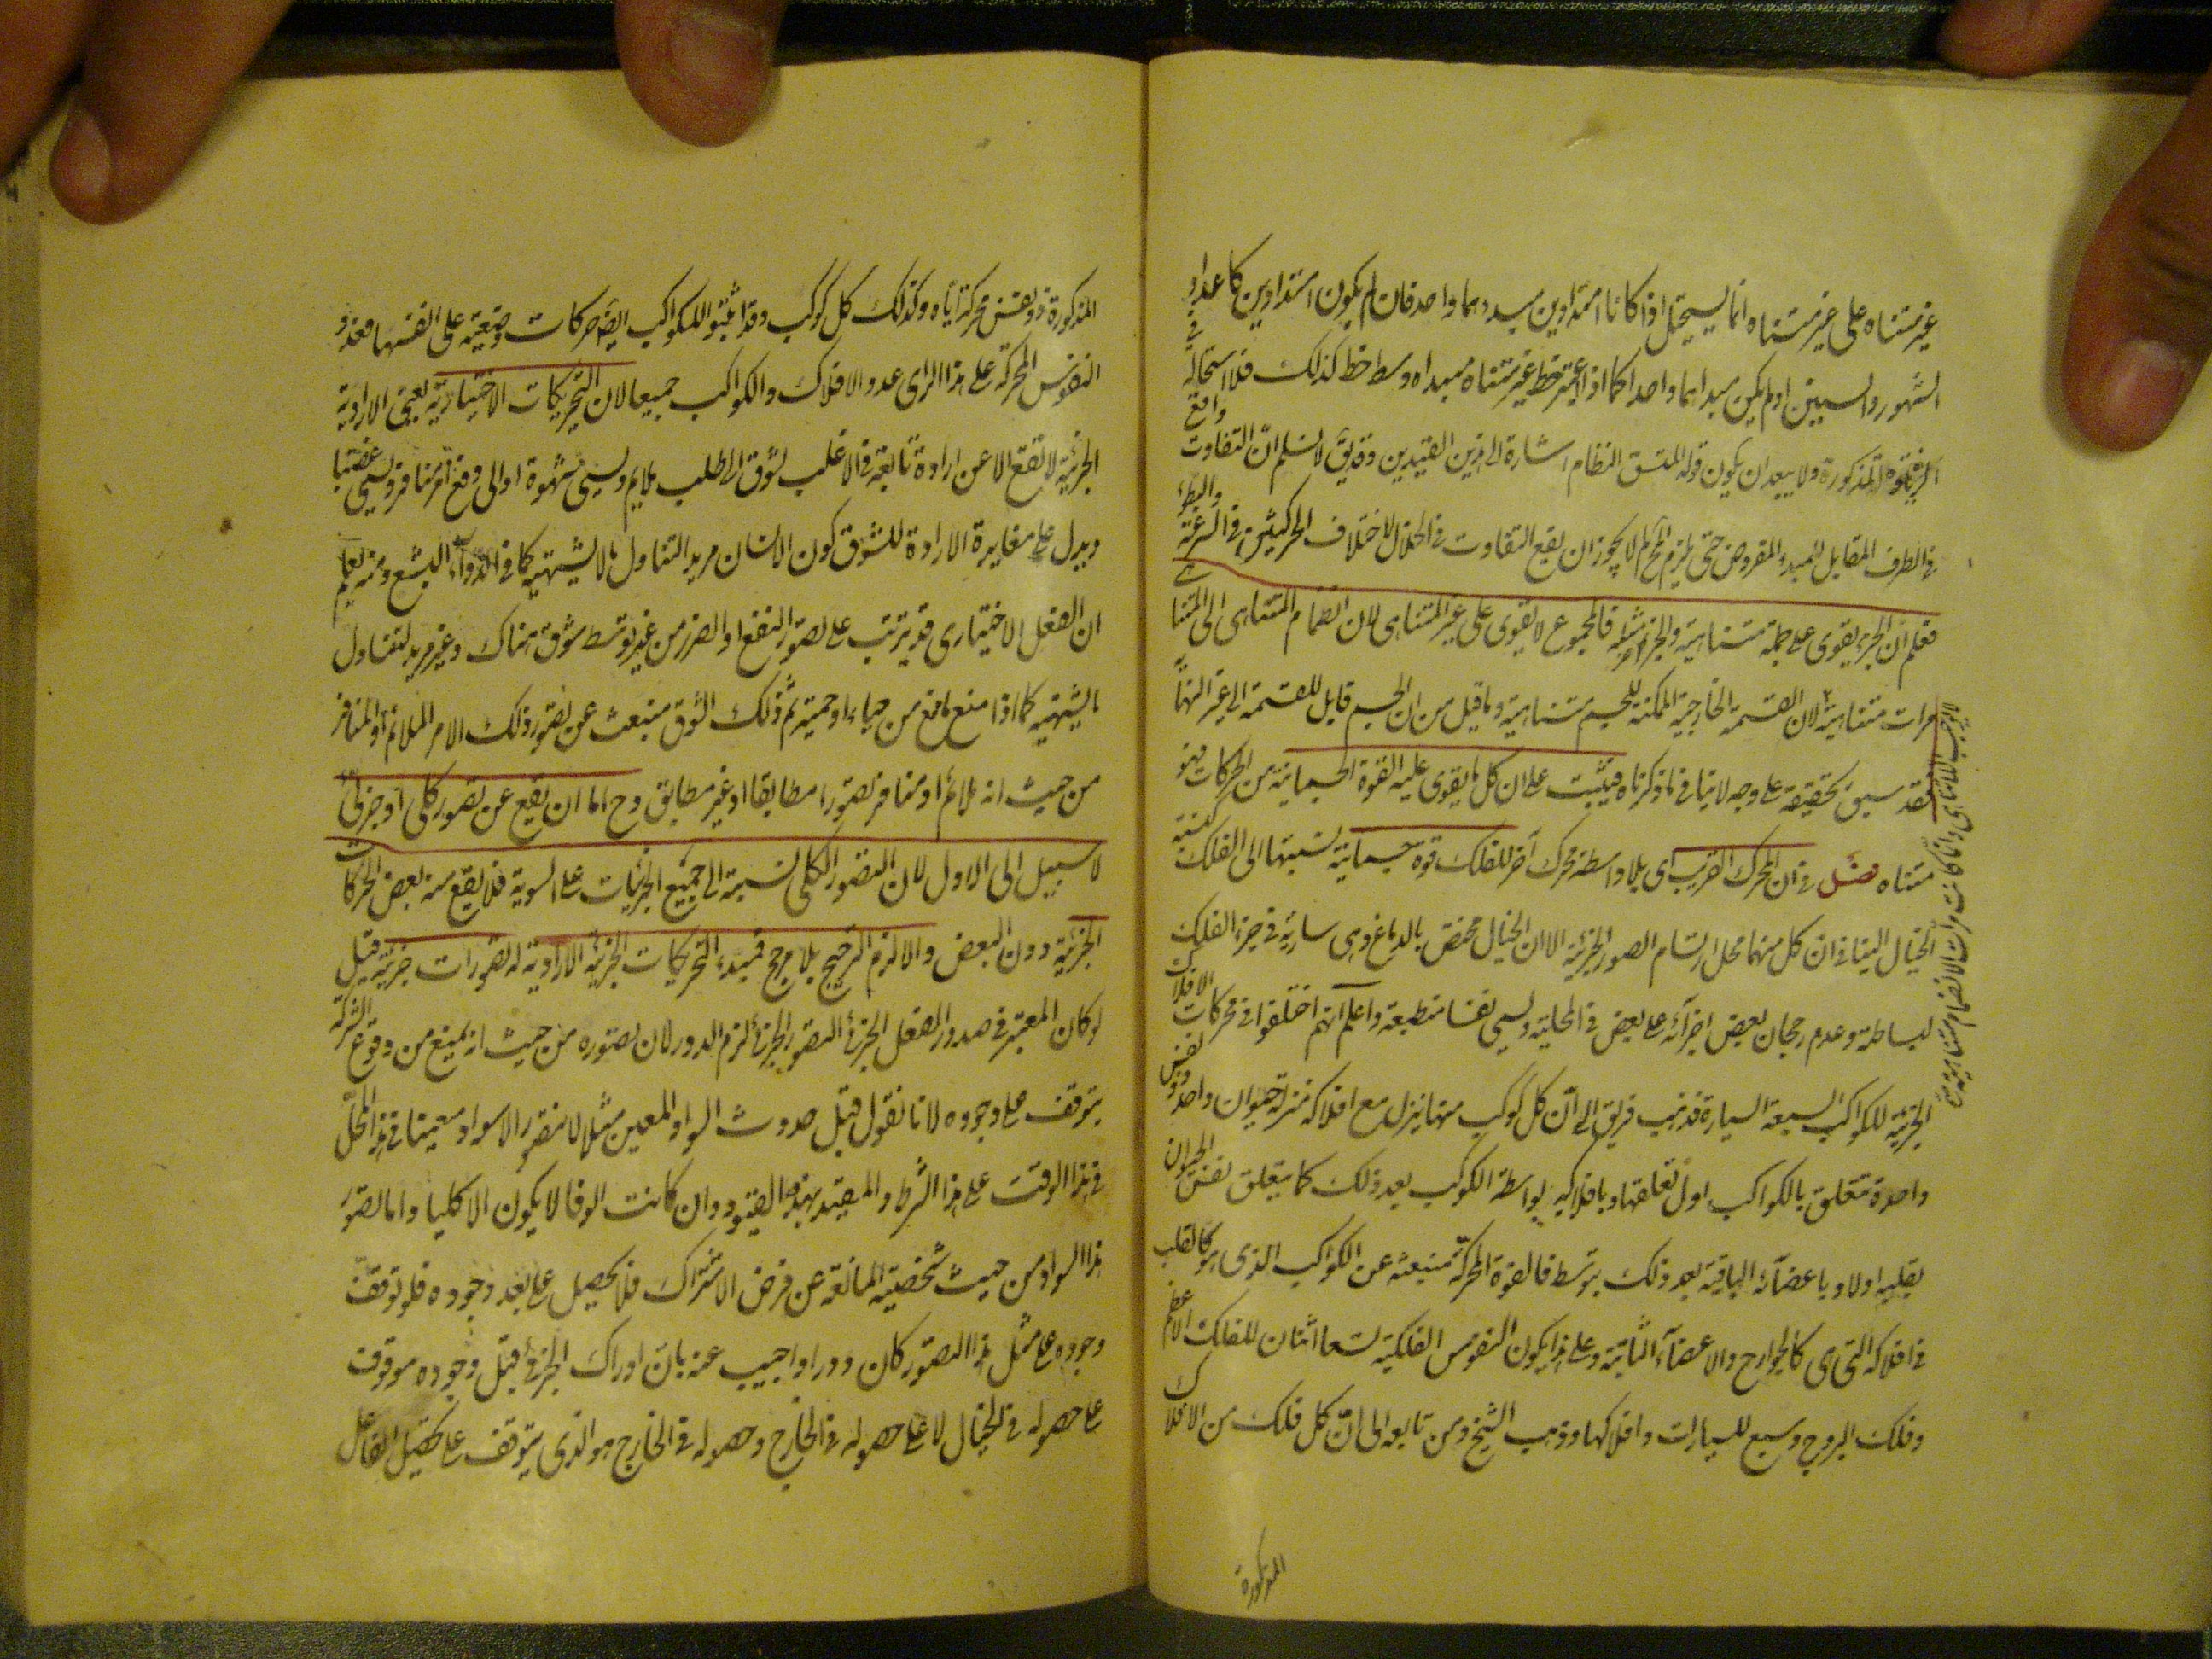 غير متناه على غير متناه انما يستحيل اذا كانا امتدادين مبدءهما واحد فان لم يكون امتدادين كاعداد
الشهور والسنين او لم يكن مبداهما واحدا كما اذا اعتبر خط غير متناه مبداه وسط خط كذلك فلا استحالة في
الزيادة المذكورة ولا يبعد ان يكون قوله المتسق النظام اشارة الى هذين القيدين وقد يق لا نسلم ان التفاوت واقع
في الطرف المقابل للمبدء المفروض حتى يلزم المح لم لا يجوز ان يقع التفاوت في الخلال لاختلاف الحركتين في السرعة والبطء
فعلم ان الجزء يقوى على جملة متناهية والجزء الاخر مثله فالمجموع لا يقوى على غير المتناهى لان انضمام المتناهى الى المتناهى
مرات متناهية لان القسمة الخارجية الممكنة للجسم متناهية وما قيل من ان الجسم قابل للقسمة الى غير النهاية
فقد سبق تحقيقه على وجه لا ينافي ما ذكرناه فيثبت على ان كل ما يقوى عليه القوة الجسمانية من الحركات فهو
متناه فصل في ان المحرك القريب اى بلا واسطة محرك آخر للفلك قوة جسمانية نسبتها الى الفلك كنسبة
الخيال الينا في ان كل منهما محل ارتسام الصور الجزئية الا ان الخيال مختص بالدماغ وهى سارية في جرم الفلك
لبساطته وعدم رجحان بعض اجزآئه على بعض في المحلية ويسمى نفسا منطبعة واعلم انهم اختلفوا في محركات الافلاك
الجزئية للكواكب السبعة السيارة فذهب فريق الى ان كل كوكب منها ينزل مع افلاكه منزلة حيوان واحد ذو نفس
واحدة تتعلق بالكواكب اول تعلقها وبافلاكه بواسطة الكوكب بعد ذلك كما يتعلق نفس الحيوان
بقلبه اولا وباعضآئه الباقية بعد ذلك بتوسطه فالقوة المحركة منبعثة عن الكواكب الذى هو كالقلب
في افلاكه التى هى كالجوارح والاعضآء الباقية وعلى هذا يكون النفوس الفلكية تسعا اثنان للفلك الاعظم
وفلك البروج وسبع للسيارات وافلاكها وذهب الشيخ ومن تابعه الى ان كل فلك من الافلاك
المذكورة
المذكورة ذو نفس محركة اياه وكذلك كل كوكب وقد اثبتوا للكواكب ايضا حركات وضعية على انفسها فعدد
النفوس المحركة على هذا الراى عدد الافلاك والكواكب جميعا لان التحريكات الاختيارية يعنى الارادية
الجزئية لا تقع الا عن ارادة تابعة في الاغلب لشوق الى طلب ملايم ويسمى شهوة او الى دفع امر منافر ويسمى غضبا
ويدل على مغايرة الارادة للشوق كون الانسان مريد التناول ما لا يشتهيه كما في الدوآء البشع ومنه يعلم
ان الفعل الاختيارى قد يترتب على تصور النفع او الضرر من غير توسط شوق هناك وغير مريد لتناول
ما يشتهيه كما اذا منع مانع من حياء او حمية ثم ذلك الشوق منبعث عن تصور ذلك الامر الملائم او المنافر
من حيث انه ملائم او منافر تصورا مطابقا او غير مطابق وح اما ان يقع عن تصور كلى او جزئى
لا سبيل الى الاول لان التصور الكلى نسبته الى جميع الجزئيات على السوية فلا يقع منه بعض الحركات
الجزئية دون البعض والا لزم الترجيح بلا مرجح فمبدء التحريكات الجزئية الارادية له تصورات جزئية قيل
لو كان المعتبر في صدور الفعل الجزئى التصور الجزئى لزم الدور لان تصوره من حيث انه يمنع من وقوع الشركة
يتوقف على وجوده لانا نقول قبل حدوث السواد المعين مثلا لا نتصور الاسوادا معينا في هذا المحل
في هذا الوقت على هذا الشرط والمقيد بهذه القيود وان كانت الوفا لا يكون الا كليا واما تصور
هذا السواد من حيث شخصيته المانعة عن فرض الاشتراك فلا يحصل على بعد وجوده فلو توقف
وجوده على مثل هذا التصور كان دورا واجيب عنه بان ادراك الجزئى قبل وجوده موقوف
على حصوله في الخيال لا على حصوله في الخارج وحصوله في الخارج هو الذى يتوقف على تحصيل الفاعل